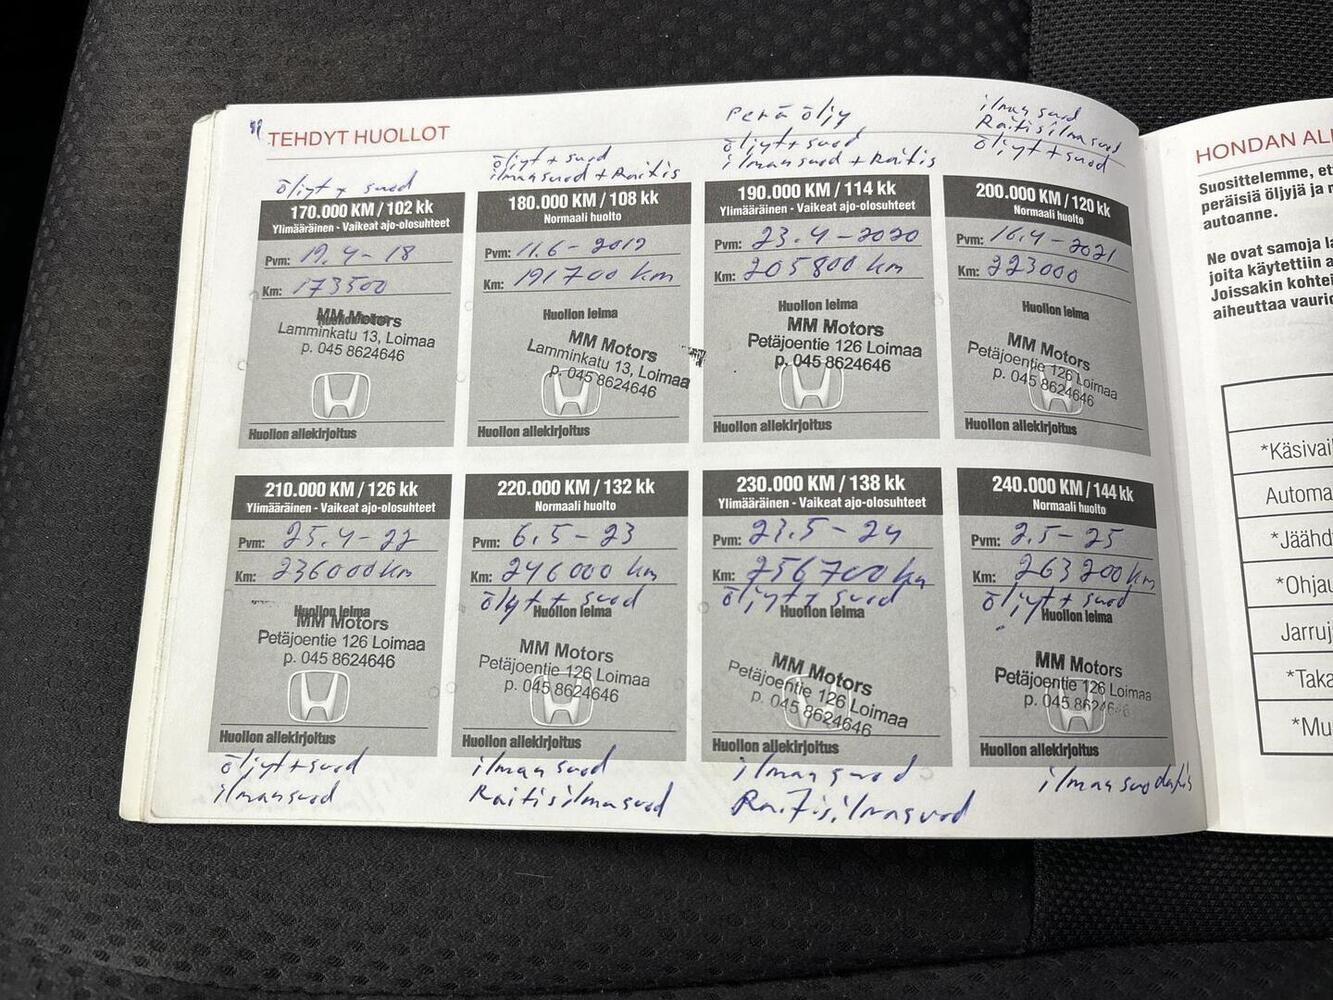 TEHDYT HUOLLOT
öljyt + suod
170.000 KM / 102 kk
Ylimääräinen - Vaikeat ajo-olosuhteet
Pvm: 19.4-18
Km: 173500
MM Motors
Lamminkatu 13, Loimaa
p. 045 8624646
Huollon allekirjoitus
öljyt + suod
ilmansuod + Raitis
180.000 KM / 108 kk
Normaali huolto
Pvm: 11.6-2019
Km: 191700 km
Huollon leima
MM Motors
Lamminkatu 13, Loimaa
p. 045 8624646
Huollon allekirjoitus
Perä öljy
öljyt + suod
ilmansuod + Raitis
190.000 KM / 114 kk
Ylimääräinen - Vaikeat ajo-olosuhteet
Pvm: 23.4-2020
Km: 205800 km
Huollon leima
MM Motors
Petäjoentie 126 Loimaa
p. 045 8624646
Huollon allekirjoitus
ilmansuod
Raitisilmasuod
öljyt + suod
200.000 KM / 120 kk
Normaali huolto
Pvm: 16.4-2021
Km: 223000
Huollon leima
MM Motors
Petäjoentie 126 Loimaa
p. 045 8624646
Huollon allekirjoitus
210.000 KM / 126 kk
Ylimääräinen - Vaikeat ajo-olosuhteet
Pvm: 25.4-22
Km: 236000 km
Huollon leima
MM Motors
Petäjoentie 126 Loimaa
p. 045 8624646
Huollon allekirjoitus
öljyt + suod
ilmansuod
220.000 KM / 132 kk
Normaali huolto
Pvm: 6.5-23
Km: 246000 km
öljyt + suod
Huollon leima
MM Motors
Petäjoentie 126 Loimaa
p. 045 8624646
Huollon allekirjoitus
ilmansuod
Raitisilmasuod
230.000 KM / 138 kk
Ylimääräinen - Vaikeat ajo-olosuhteet
Pvm: 23.5-24
Km: 256700 km
öljyt + suod
Huollon leima
MM Motors
Petäjoentie 126 Loimaa
p. 045 8624646
Huollon allekirjoitus
ilmansuod
Raitisilmasuod
240.000 KM / 144 kk
Normaali huolto
Pvm: 2.5-25
Km: 263200 km
öljyt + suod
Huollon leima
MM Motors
Petäjoentie 126 Loimaa
p. 045 8624646
Huollon allekirjoitus
ilmansuodatis
HONDAN AL
Suosittelemme, et
peräisiä öljyjä ja
autoanne.
Ne ovat samoja la
joita käytettiin a
Joissakin kohte
aiheuttaa vaurio
*Käsivai
Automa
*Jäähd
*Ohjau
Jarruj
*Taka
*Mu